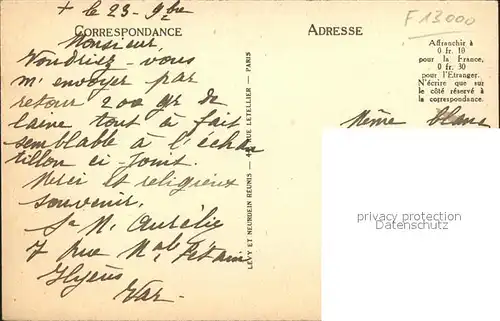 + le 23-9bre
F13000
CORRESPONDANCE
ADRESSE
Monsieur,
Voudriez-vous
m'envoyer par
retour 200 gr de
laine tout à fait
semblable à l'échan
tillon ci-joint.
Merci et religieux
souvenir.
Sr M. Aurélie
7 rue Mal Pétain
Hyères
Var-
LÉVY ET NEURDEIN RÉUNIS — 44, RUE LETELLIER — PARIS
Affranchir à
0 fr. 10
pour la France,
0 fr. 30
pour l'Étranger.
N'écrire que sur
le côté réservé à
la correspondance.
Même
privacy protection
Datenschutz